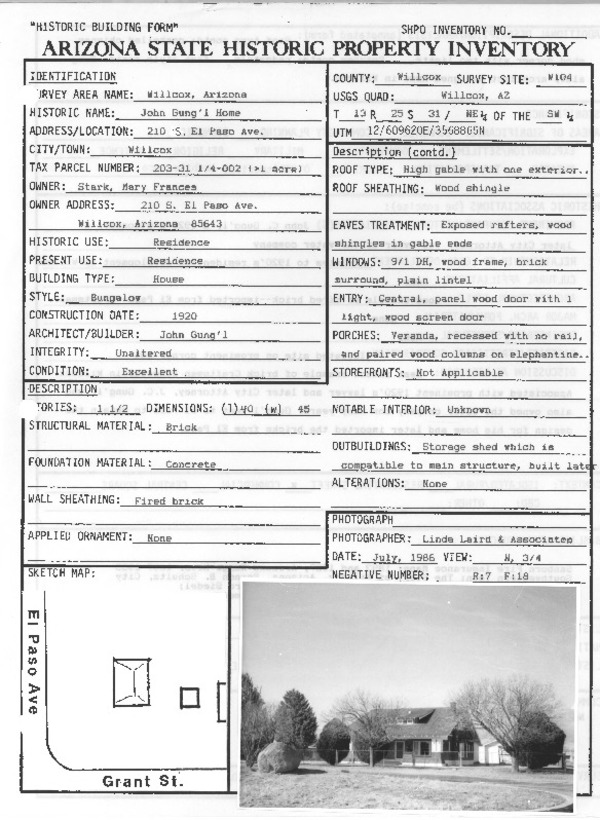 "HISTORIC BUILDING FORM"
SHPO INVENTORY NO.
ARIZONA STATE HISTORIC PROPERTY INVENTORY
IDENTIFICATION
URVEY AREA NAME: Willcox, Arizona
HISTORIC NAME: John Gung'l Home
ADDRESS/LOCATION: 210 S. El Paso Ave.
CITY/TOWN: Willcox
TAX PARCEL NUMBER: 203-31 1/4-002 (>1 acre)
OWNER: Stark, Mary Frances
OWNER ADDRESS: 210 S. El Paso Ave.
Willcox, Arizona 85643
HISTORIC USE: Residence
PRESENT USE: Residence
BUILDING TYPE: House
STYLE: Bungalow
CONSTRUCTION DATE: 1920
ARCHITECT/BUILDER: John Gung'l
INTEGRITY: Unaltered
CONDITION: Excellent
DESCRIPTION
TORIES: 1 1/2 DIMENSIONS: (l)40 (w) 45
STRUCTURAL MATERIAL: Brick
FOUNDATION MATERIAL: Concrete
WALL SHEATHING: Fired brick
APPLIED ORNAMENT: None
COUNTY: Willcox SURVEY SITE: W104
USGS QUAD: Willcox, AZ
T 13 R 25 S 31 / NE¼ OF THE SW ¼
UTM 12/609620E/3568865N
Description (contd.)
ROOF TYPE: High gable with one exterior..
ROOF SHEATHING: Wood shingle
EAVES TREATMENT: Exposed rafters, wood
shingles in gable ends
WINDOWS: 9/1 DH, wood frame, brick
surround, plain lintel
ENTRY: Central, panel wood door with 1
light, wood screen door
PORCHES: Veranda, recessed with no rail,
and paired wood columns on elephantine..
STOREFRONTS: Not Applicable
NOTABLE INTERIOR: Unknown
OUTBUILDINGS: Storage shed which is
compatible to main structure, built later
ALTERATIONS: None
PHOTOGRAPH
PHOTOGRAPHER: Linda Laird & Associates
DATE: July, 1986 VIEW: N, 3/4
NEGATIVE NUMBER: R:7 F:18
SKETCH MAP:
El Paso Ave
Grant St.